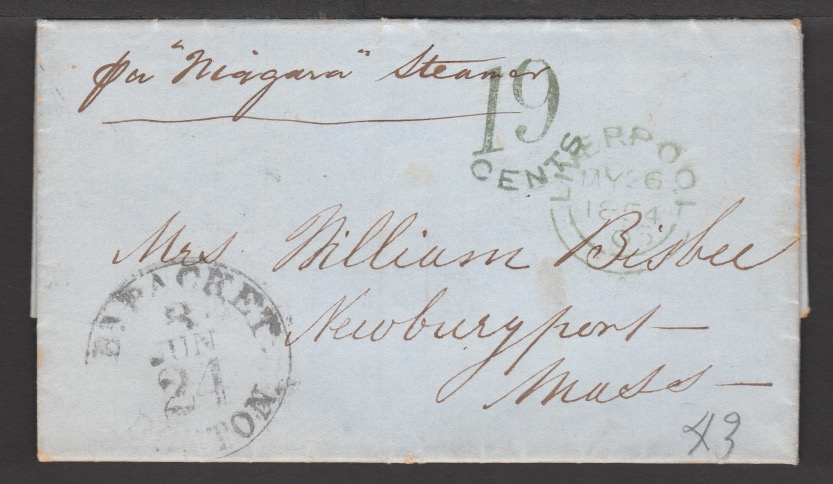 per "Niagara" Steamer
19
CENTS
LIVERPOOL
MY 26
1854
Mrs. William Bisbee
Newburyport
Mass
BR PACKET
8
JUN
24
BOSTON
43